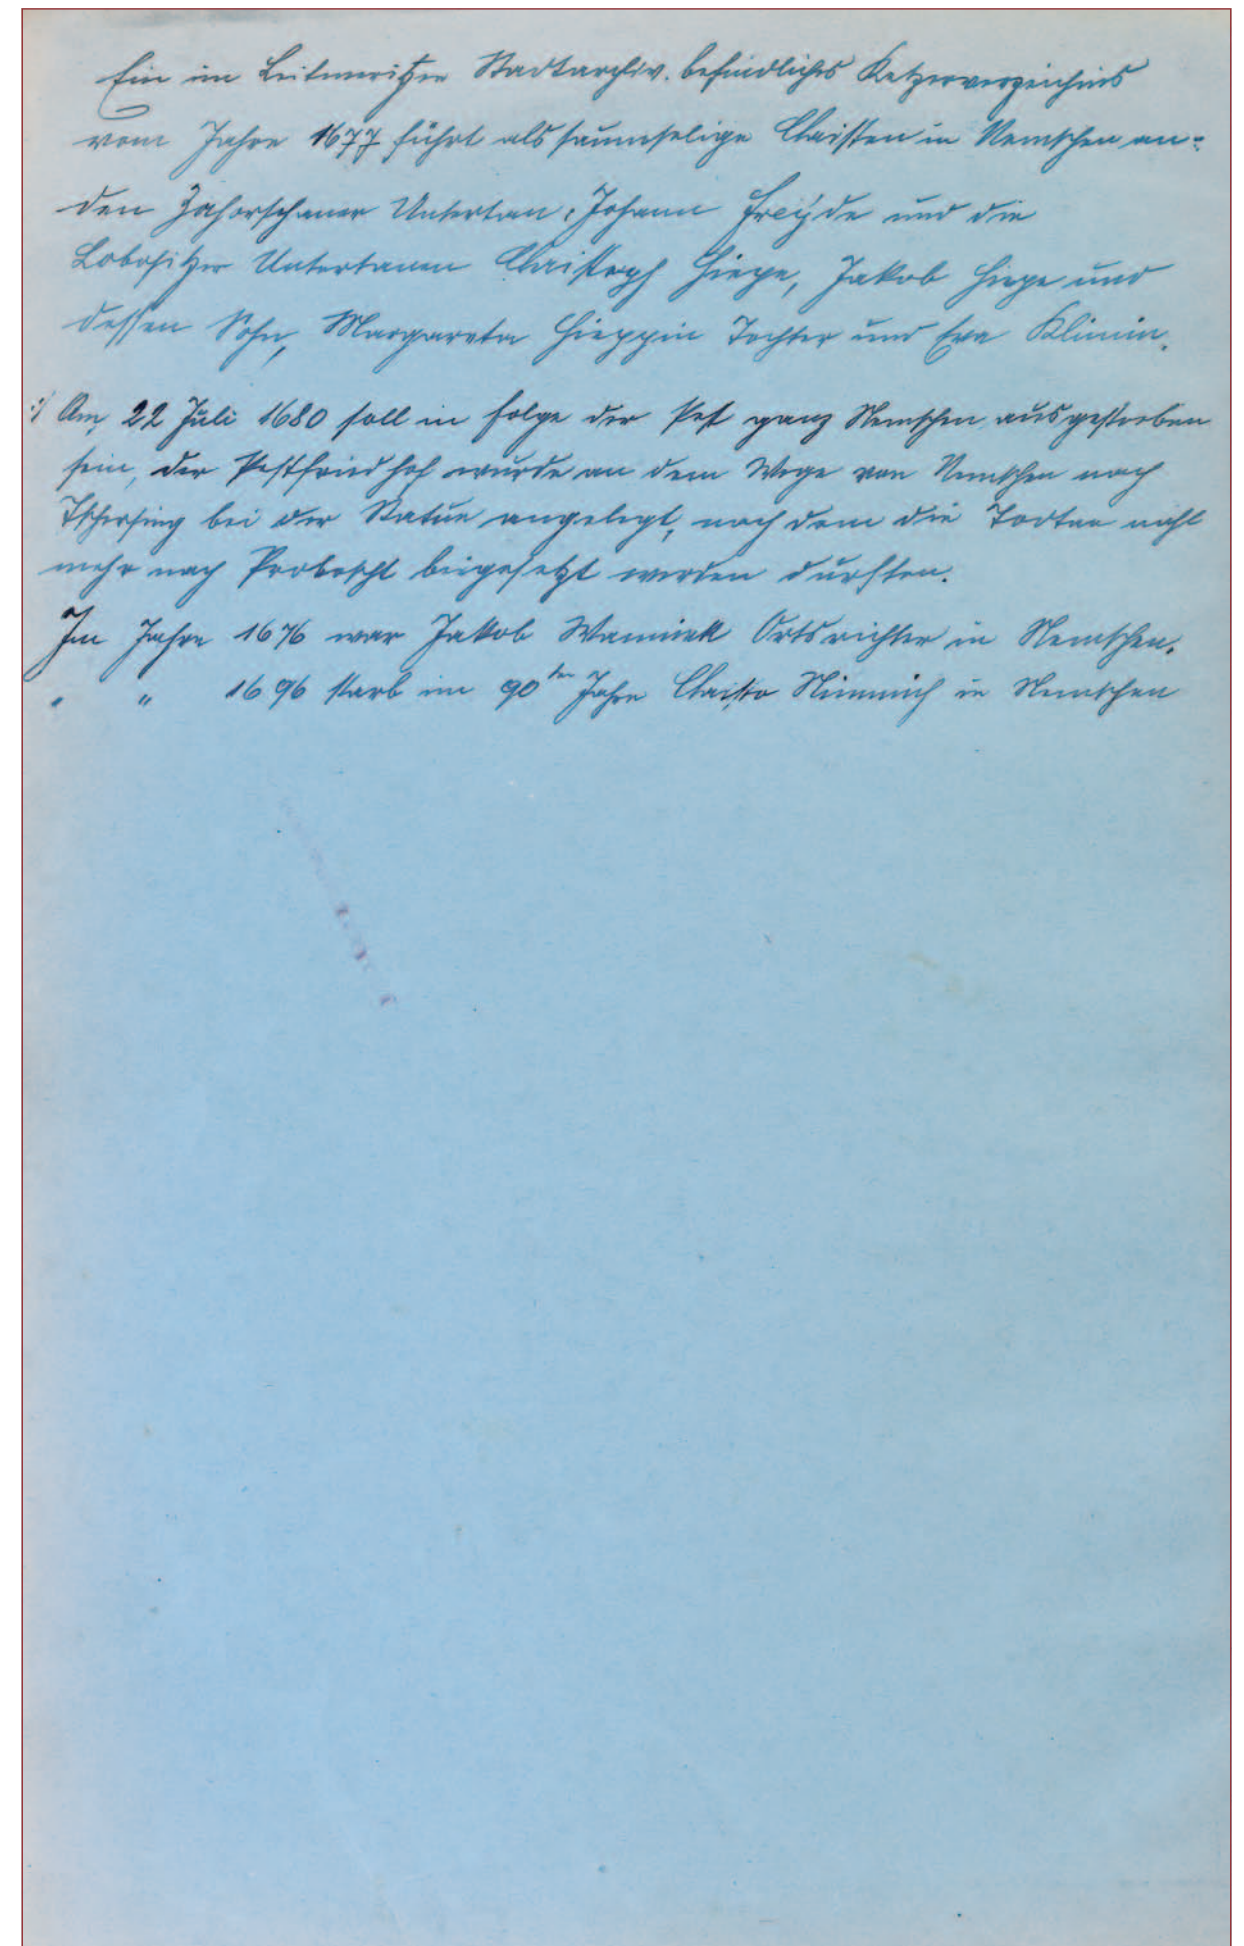 Ein im Leitmeritzer Stadtarchiv. befindliches Ketzerverzeichnis
vom Jahre 1677 führt als saumselige Christen in Nemschen an:
den Zahorschaner Untertan, Johann Freÿde und die
Lobositzer Untertanen Christoph Hiepe, Jakob Hiepe und
dessen Sohn, Margareta Hieppin Tochter und Eva Klimin.
:/ Am 22 Juli 1680 soll in folge der Pest ganz Nemschen ausgestorben
sein, der Pestfriedhof wurde an dem Wege von Nemschen nach
Tschersing bei der Statue angelegt, nach dem die Todten nicht
mehr nach Proboscht beigesetzt werden durften.
Im Jahre 1676 war Jakob Wanniek Ortsrichter in Nemschen.
" " 1696 starb im 90ten Jahre in Nemschen